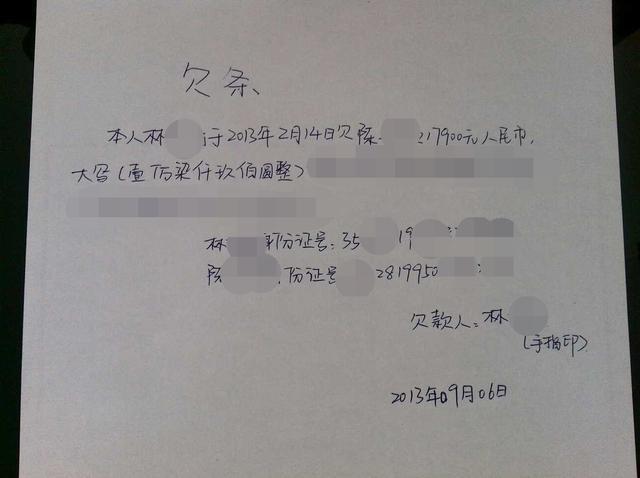 欠条
本人林 于2013年2月14日欠陈 17900元人民币,
大写(壹万柒仟玖佰圆整)
林 身份证号:35 19
陈 份证号 2819950
欠款人:林
(手指印)
2013年09月06日